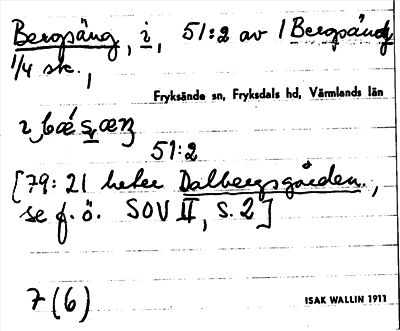 Bergsäng, i, 51:2 av 1 Bergsäng
1/4 sk.,
Fryksände sn, Fryksdals hd, Värmlands län
51:2
[79:21 heter Dalbergsgården,
se f.ö. SOV II, s. 2]
7 (6)
ISAK WALLIN 1911